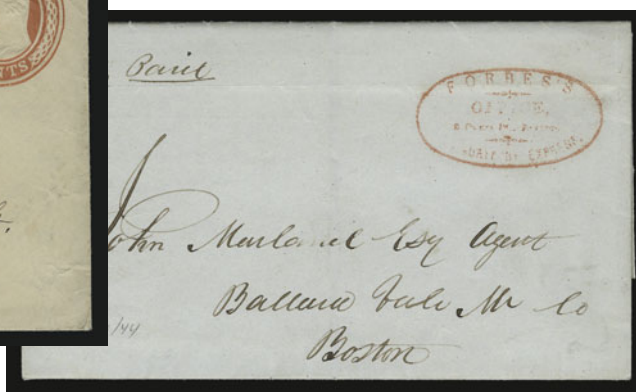 NTS
Paid
FORBES'S
OFFICE,
EXPRESS.
John Marland Esq Agent
Ballard Vale Mr Co
Boston
/44